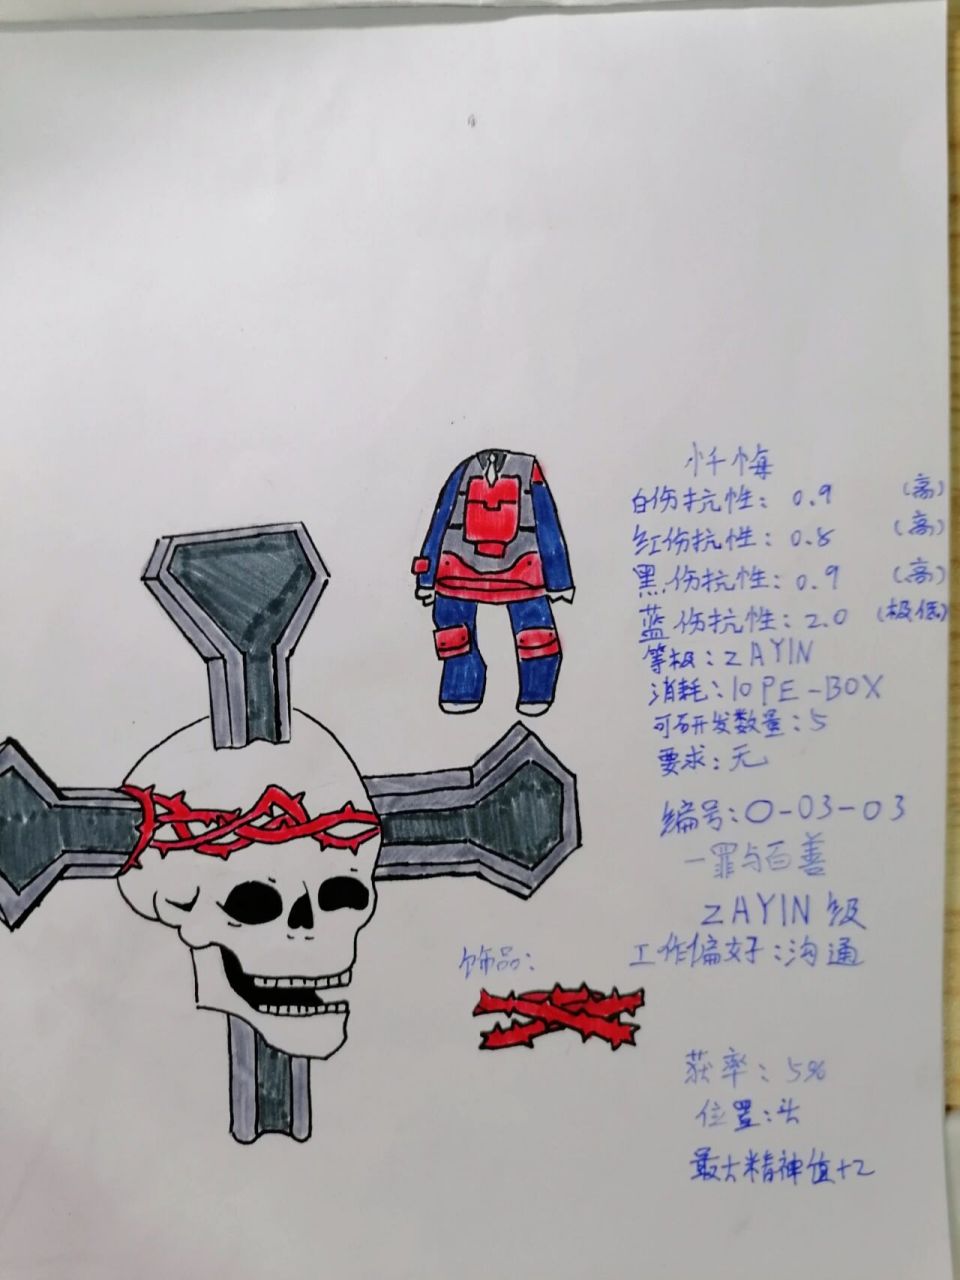 忏悔
白伤抗性：0.9（高）
红伤抗性：0.8（高）
黑伤抗性：0.9（高）
蓝伤抗性：2.0（极低）
等极：ZAYIN
消耗：10PE-BOX
可研开发数量：5
要求：无
编号：O-03-03
一罪与百善
ZAYIN级
工作偏好：沟通
饰品：
获率：5%
位置：头
最大精神值+2